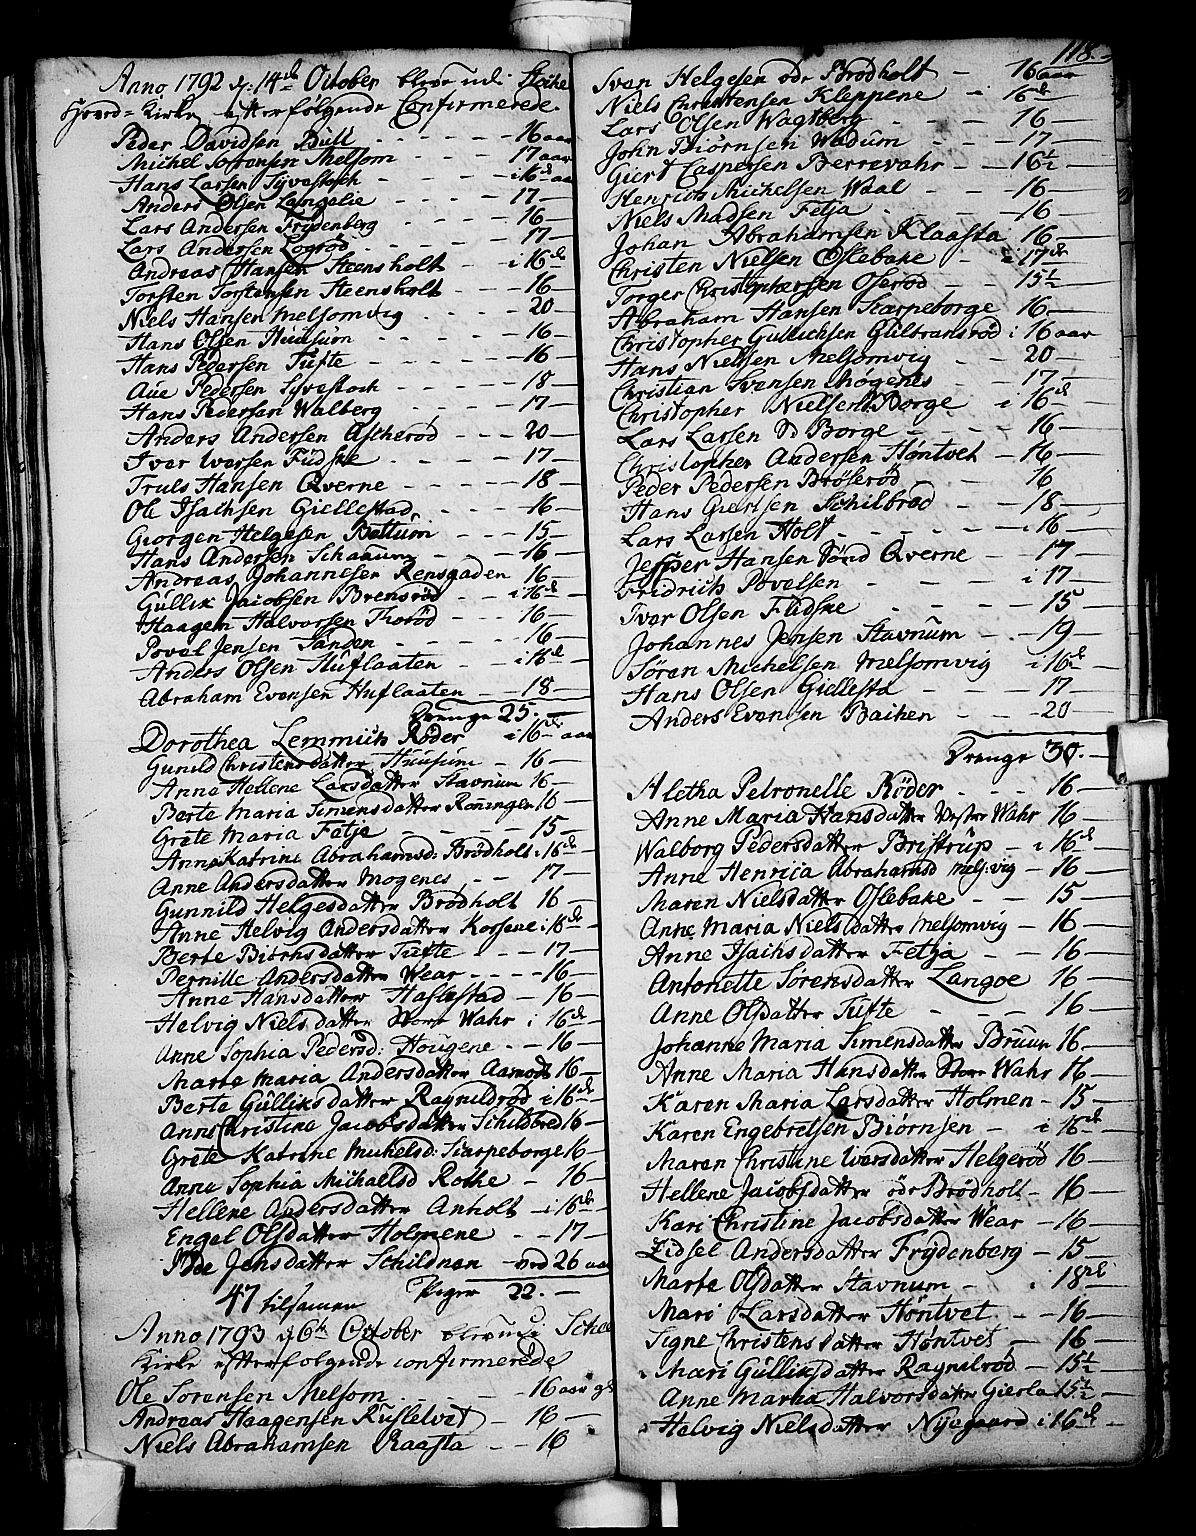 Anno 1792 d: 14de October bleve udi Stoche
Hoved-Kirke efterfølgende Confirmerede.
Peder Davidsen Bull - - - 16 aar
Michel Sørrensen Melsom - - - 17 aar
Hans Larsen Syvestoch - - - i 16de aar
Anders Olsen Langelie - - - 17
Lars Andersen Frydenberg - - - 16
Lars Andersen Logrød - - - 17
Andreas Hansen Steensholt - - i 16de
Torsten Torstensen Steensholt - - - 16
Niels Hansen Melsomvig - - - 20
Hans Olsen Huusum - - - 16
Hans Pedersen Tufte - - - 16
Aue Pedersen Syvestoch - - - 18
Hans Pedersen Walberg - - - 17
Anders Andersen Ascherød - - - 20
Iver Iversen Fudske - - - 17
Truls Hansen Qverne - - - 18
Ole Isachsen Giellestad - - - 16
Giorgen Helgesen Bettum - - - 15
Hans Andersen Schaaum - - - 16
Andreas Johannesen Rensgaden 16
Gullik Jacobsen Brensrød - - i 16de
Haagen Halvorsen Thorød - - - 16
Povel Jensen Sanden - - - 16
Anders Olsen Huflaaten - - - i 16de
Abraham Evensen Huflaaten - - 18
Drenge 25.
Dorothea Lemmich Røder i 16de aar
Gunild Christensdatter Huusum - 16
Anne Hellene Larsdatter Stavnum 16
Berte Maria Simensdatter Røningen 16
Grete Maria Fetja - - - 15
Anne Katrine Abrahamsd: Brødholt i 16de
Anne Andersdatter Mogenes - - 17
Gunnild Helgesdatter Brødholt 16
Anne Helvig Andersdatter Korsene i 16de
Berte Biørnsdatter Tufte - - - 17
Pernille Andersdatter Wear - - - 16
Anne Hansdatter Haslestad - 16
Helvig Nielsdatter Store Wahr i 16de
Anne Sophia Pedersd: Hougene - - 16
Marte Maria Andersdatter Aamodt 16
Berte Gulliksdatter Ragnildrød i 16de
Anne Christine Jacobsdatter Schilbred 16
Grete Katrine Michelsd: Scarpeborge 16
Anne Sophia Michaelsd Rothe - 16
Hellene Andersdatter Anholt - i 16de
Engel Olsdatter Holmene - - 17
Ide Jensdatter Schildnan - ved 26 aar
47 tilsamen Piger 22.
Anno 1793 d 6te October bleve udi Schee
Kirke efterfølgende confirmerede
Ole Sorensen Melsom - - - 16 aar gl
Andreas Haagensen Ruslevat - 16
Niels Abrahamsen Raasta - - 16
118.
Sven Helgesen øde Brødholt - 16 aar
Niels Christensen Kleppene - i 16de
Lars Olsen Wagtberg - - - 16
John Biørnsen Wadum - - - 17
Giert Caspersen Berrevahr - 16½
Henrich Michelsen Waal - - 16
Niels Madsen Fetja - - - 16
Johan Abrahamsen Klaasta 16
Christen Nielsen Oslebake - i 17de
Torger Christophersen Oserød - - 15½
Abraham Hansen Scarpeborge 16
Christopher Gullichsen Gulbransrød i 16 aar
Hans Nielsen Melsomvig - - 20
Christian Svensen Mogenes - - 17
Christopher Nielsen Borge i 16de
Lars Larsen Borge - - - 16
Christopher Andersen Høntvet - 16
Peder Pedersen Brøserød - - 16
Hans Giertsen Schilbred - - 18
Lars Larsen Holt - - - i 16
Jesper Hansen Sønd Qverne - - 17
Fridrich Povelsen - - - i 17
Iver Olsen Fudske - - - 15
Johannes Jensen Stavnum - - 19
Søren Michelsen Melsomvig i 16de
Hans Olsen Giellesta - - - 17
Anders Evensen Backen - - - 20
Drenge 30.
Aletha Petronelle Røder - - - 16
Anne Maria Hansdatter Vester Wahr 16
Walborg Pedersdatter Bristrup - i 16de
Anne Henrica Abrahamsd Mels:vig - 16
Maren Nielsdatter Oslebake - - 15
Anne Maria Nielsdatter Melsomvig - 16
Anne Isachsdatter Fetja - - 16
Antonette Sørensdatter Langøe 16
Anne Olsdatter Tufte - - - 16
Johanne Maria Simensdatter Bruun 16
Anne Maria Hansdatter Store Wahr 16
Karen Maria Larsdatter Holmen - 15
Karen Engebretsen Biørnsen - i 16de
Maren Christine Iversdatter Helgerød 16
Hellene Jacobsdatter øde Brødholt - 16
Kari Christine Jacobsdatter Wear - 16
Zidsel Andersdatter Frydenberg - 15
Marte Olsdatter Stavnum - i 18de
Mari Larsdatter Høntvet - - 16
Signe Christensdatter Høntvet - 16
Mari Gulliksdatter Ragnilrød - 15½
Anne Marthe Halvorsdatter Gierla 15½
Helvig Nielsdatter Nyegaard i 16de